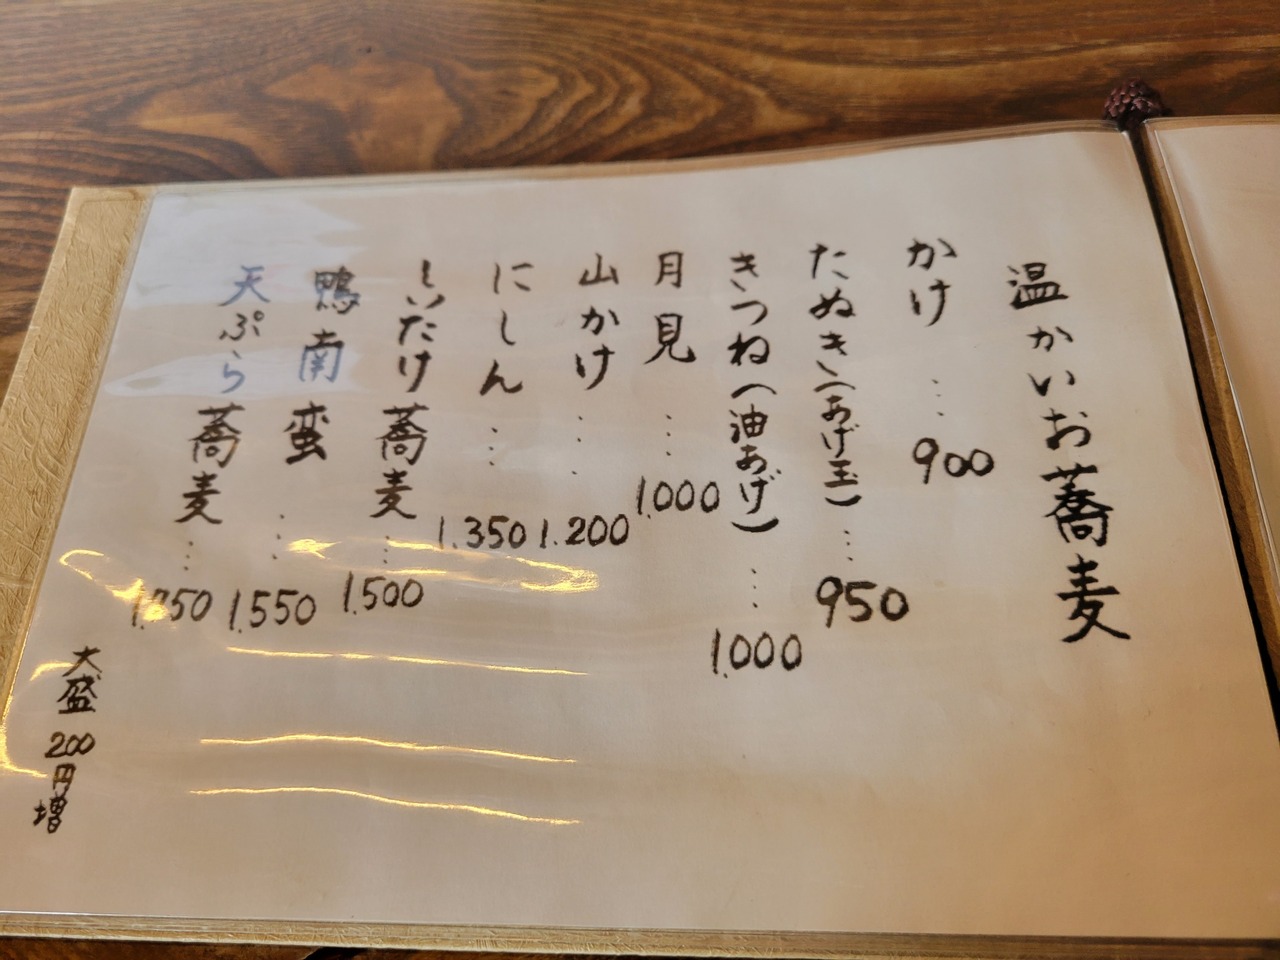 温かいお蕎麦
かけ…900
たぬき(あげ玉)…950
きつね(油あげ)…1.000
月見…1.000
山かけ…1.200
にしん…1.350
しいたけ蕎麦…1.500
鴨南蛮…1.550
天ぷら蕎麦…
大盛200円増